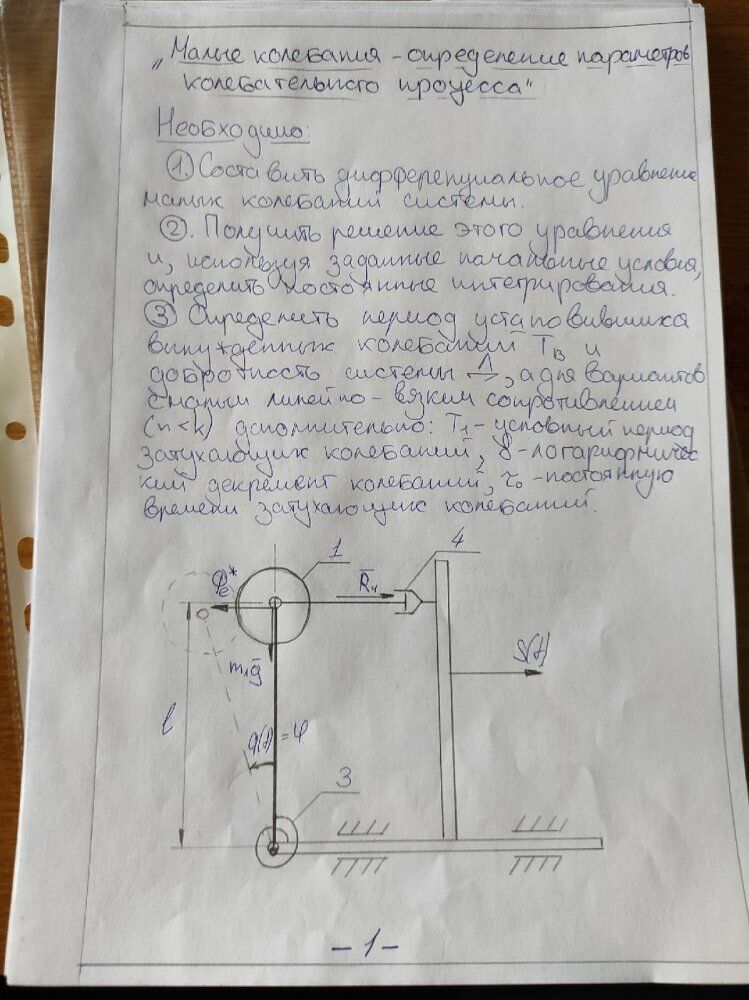 „Малые колебания - определение параметров
колебательного процесса"
Необходимо:
① Составить дифференциальное уравнение
малых колебаний системы.
②. Получить решение этого уравнения
и, используя заданные начальные условия,
определить постоянные интегрирования.
③ Определить период установившихся
вынужденных колебаний Tв и
добротность системы Λ, а для вариантов
с малым линейно-вязким сопротивлением
(n<k) дополнительно: T₁-условный период
затухающих колебаний, δ-логарифмичес
кий декремент колебаний, τ₀-постоянную
времени затухающих колебаний.
1
4
Φe*
R̄₄
m₁ḡ
S(t)
l
q(t)=φ
3
-1-